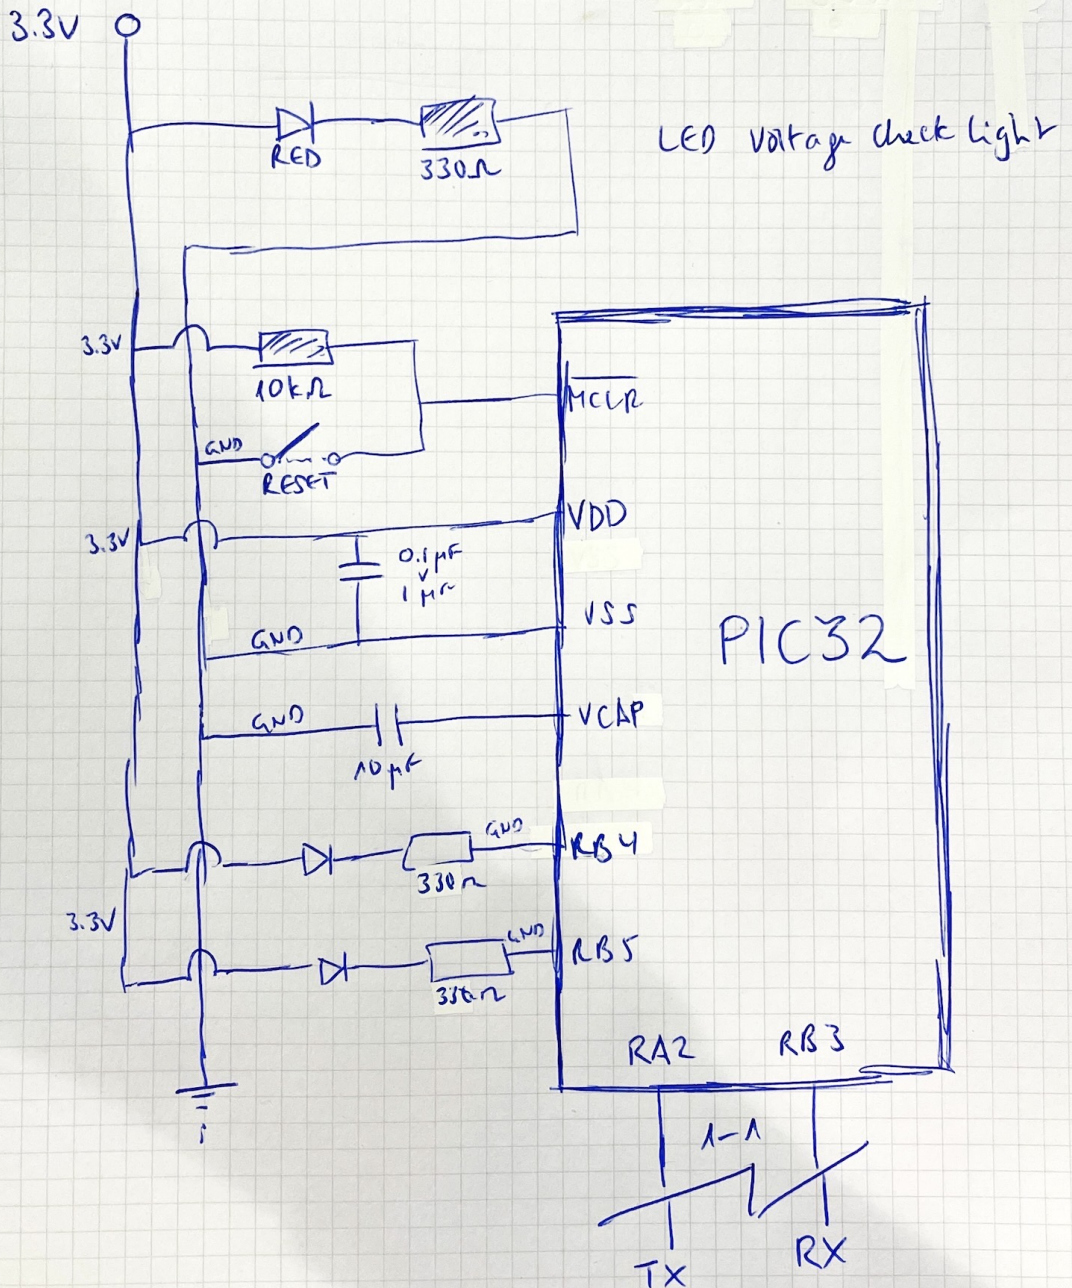 3.3V
RED
330Ω
LED Voltage Check Light
3.3V
10kΩ
MCLR
GND
RESET
3.3V
VDD
0.1µF
v
1µF
GND
VSS
PIC32
GND
VCAP
10µF
GND
RB4
330Ω
3.3V
GND
RB5
330Ω
RA2
RB3
1-1
TX
RX